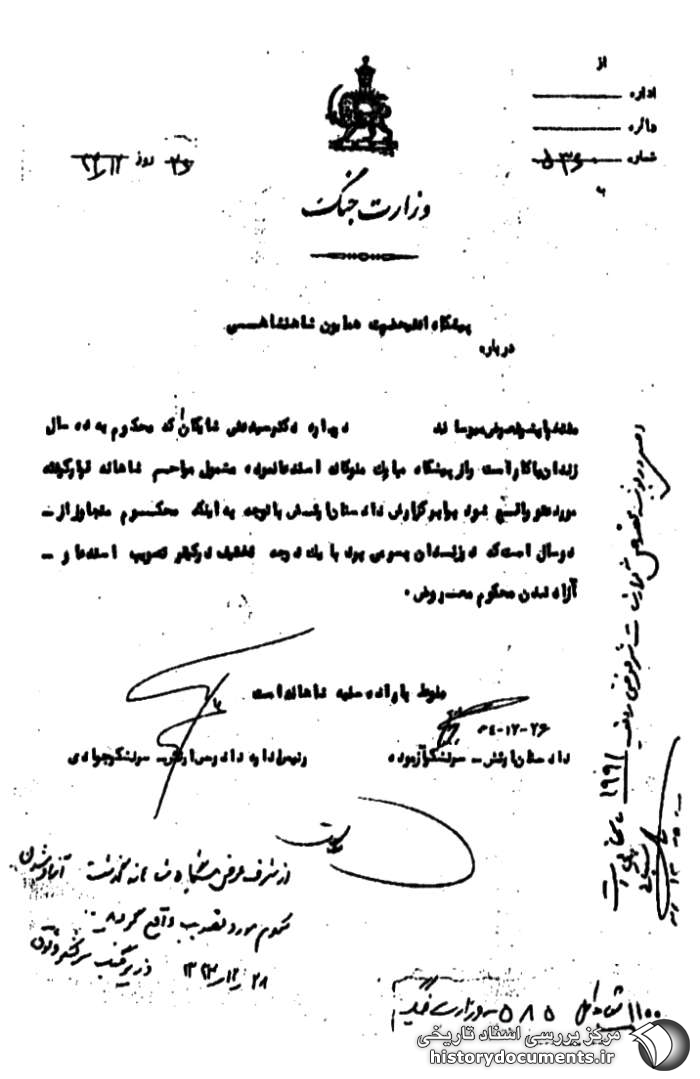 از
اداره
دائره
شماره ۵۳۶
به
روز ۲۶
وزارت جنگ
پیشگاه اعلیحضرت همایون شاهنشاهی
درباره
مفتخرا بشرفعرض میرساند درباره دکتر سیدعلی شایگان که محکوم به ده سال
زندان با کار است و از پیشگاه مبارک ملوکانه استدعا نموده مشمول مراحم شاهانه قرار گیرد
مورد عفو واقع شود برابر گزارش دادستان ارتش با توجه به اینکه محکوم متجاوز از ـ
دو سال است که در زندان بسر می برد با یک درجه تخفیف در کیفر تصویب استدعا و ـ
آزاد شدن محکوم معروض .
منوط باراده سنیه شاهانه است
۳۴-۱۲-۲۶
دادستان ارتش ـ سرلشگر آزموده
رئیس اداره دادرسی ارتش ـ سرلشگر جوادی
از شرف عرض پیشگاه شاهانه گذشت آزاد شدن
محکوم مورد تصویب واقع گردید
وزیر جنگ سرلشکر وثوق
۲۸
۱۹۹۱
۱۱۰۰
۵۸۵
مرکز بررسی اسناد تاریخی
historydocuments.ir